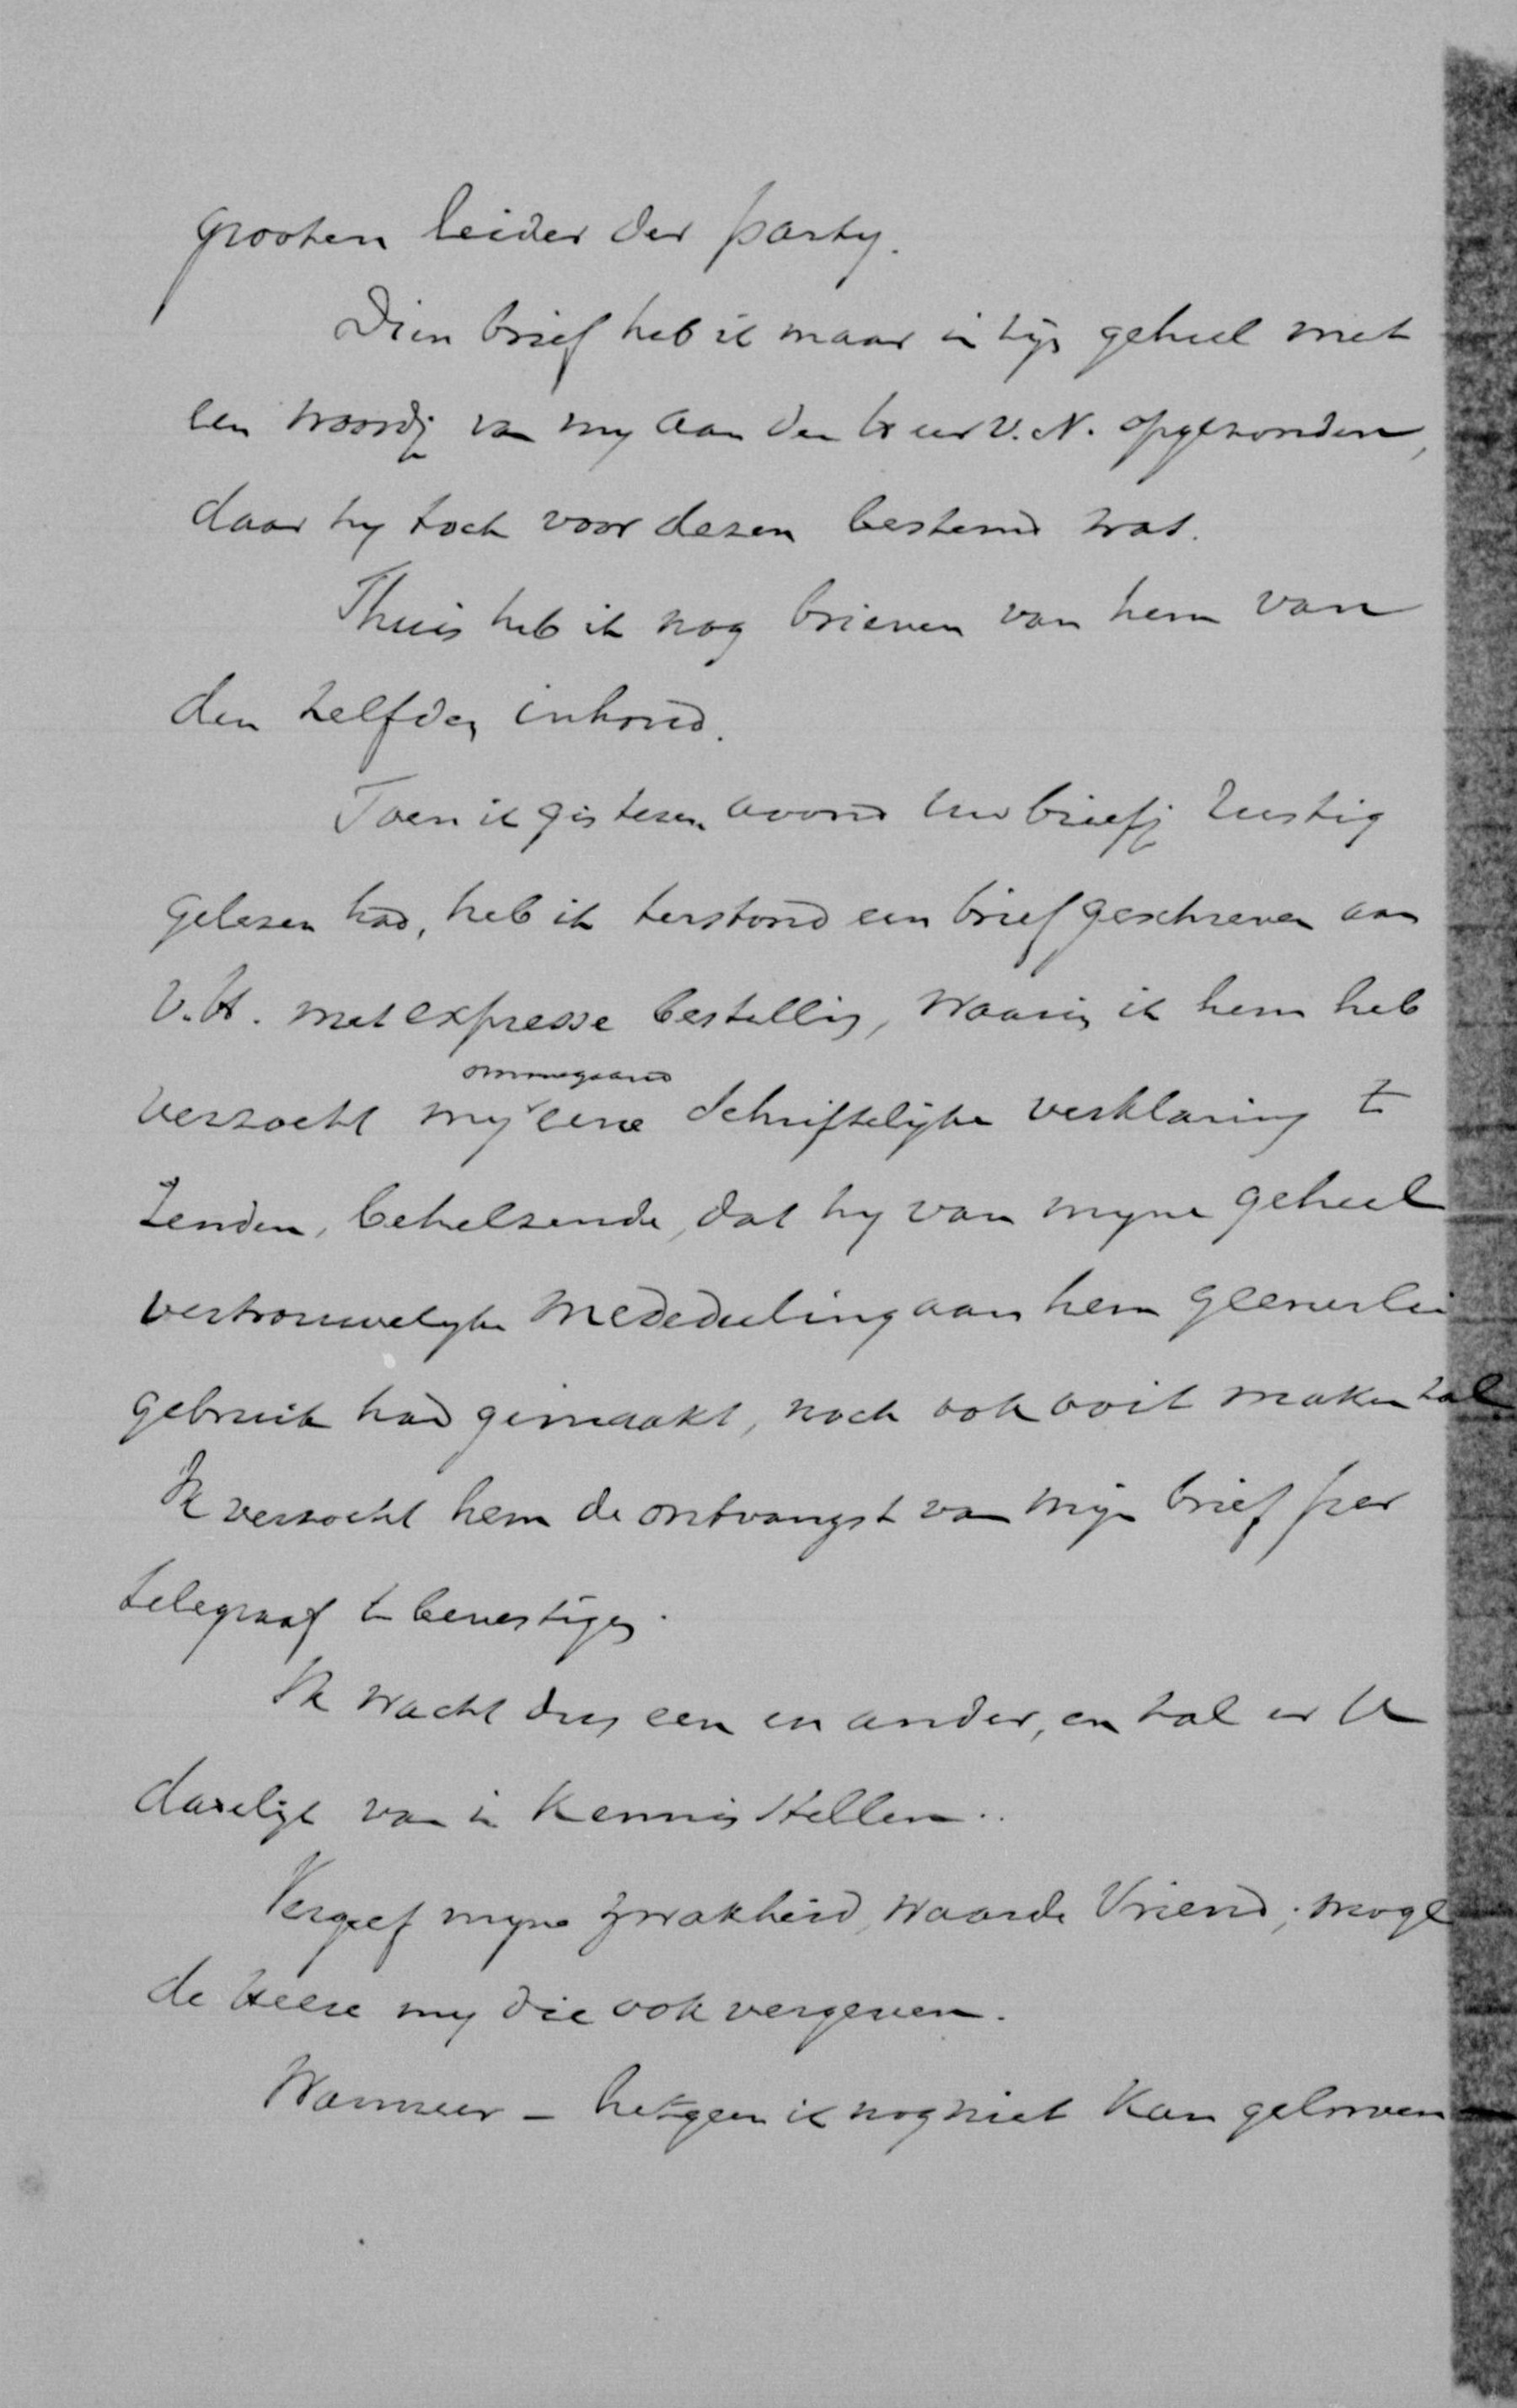 grooten leider der party.
Dien brief heb ik maar in zijn geheel met
een woordje van my aan den heer V. N. opgezonden,
daar hy toch voor dezen bestemd was.
Thuis heb ik nog brieven van hem van
den zelfden inhoud.
Toen ik gisteren avond Uw briefje rustig
gelezen had, heb ik terstond een brief geschreven aan
V. H. met expresse bestelling, waarin ik hem heb
ommegaand
verzocht my eene schriftelyke verklaring te
zenden, behelzende, dat hy van myne geheel
vertrouwelyke mededeeling aan hem geenerlei
gebruik had gemaakt, noch ook ooit maken zal
Ik verzocht hem de ontvangst van mijn brief per
telegraaf te bevestigen.
Ik wacht dus een en ander, en zal er U
dadelijk van in kennis stellen..
Vergeef myne zwakheid, waarde Vriend; moge
de Heere my die ook vergeven.
Wanneer - hetgeen ik nog niet kan gelooven -